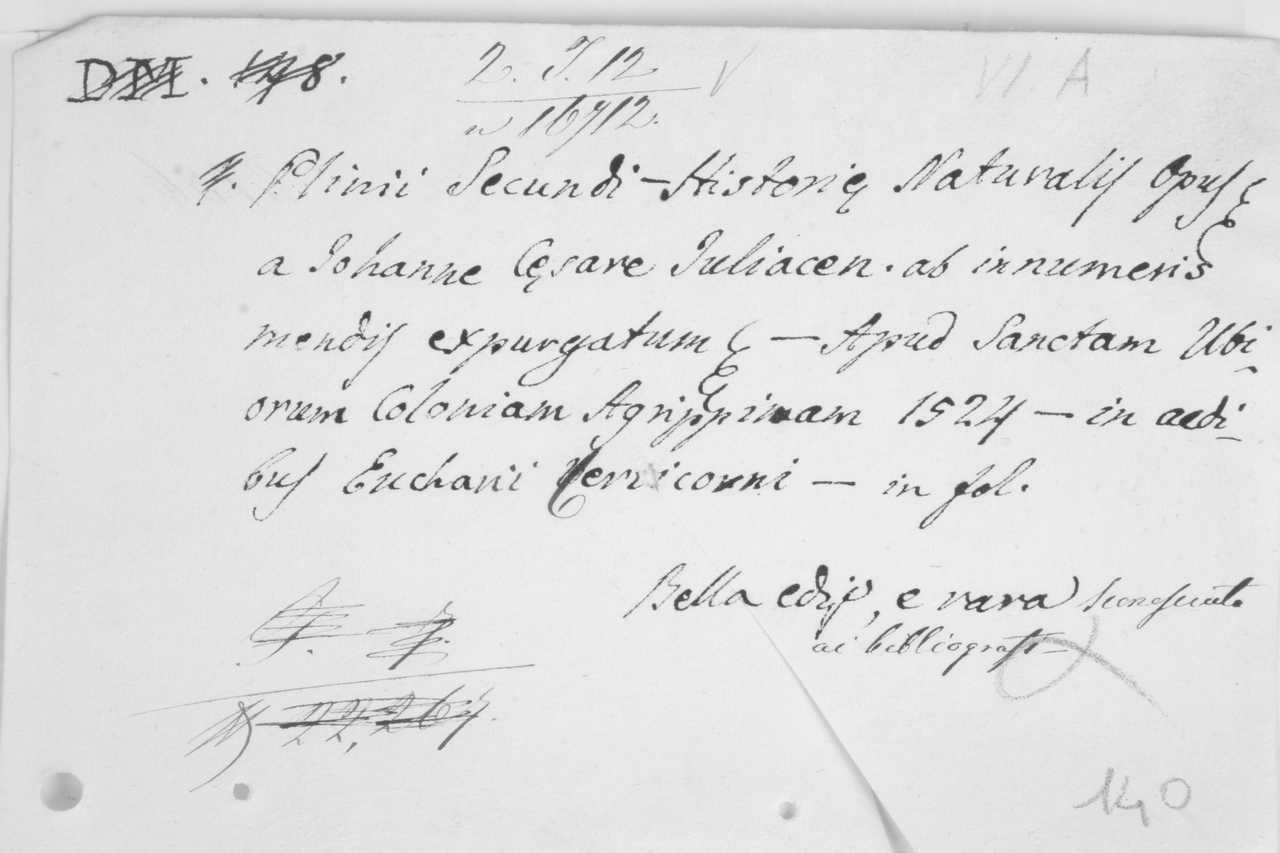 DM. 148.
2. J. 12 V
n 16712.
VI. A
Plinii Secundi - Historię Naturalis Opus
a Johanne Cęsare Juliacen. ab innumeris
mendis expurgatum — Apud Sanctam Ubi-
orum Coloniam Agrippinam 1524 — in aedi-
bus Eucharii Cervicorni — in fol.
Bella ediz, e rara
ai bibliografi
22,264.